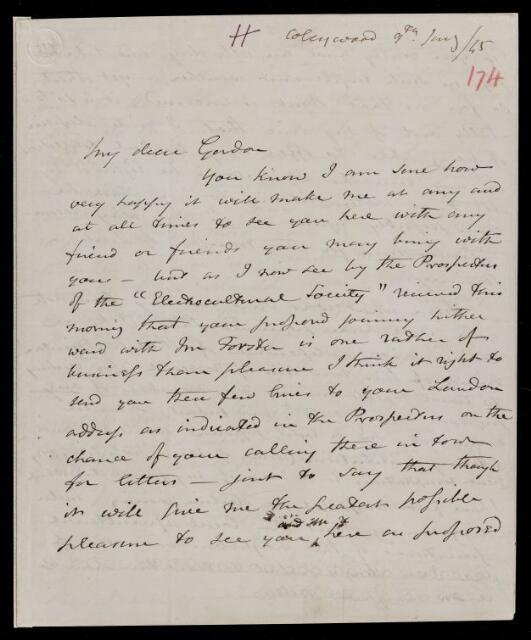 H
Coleywood 9th Jany /45
174
My dear Gordon
You know I am sure how
very happy it will make me at any and
at all times to see you here with any
friend or friends you may bring with
you – but as I now see by the Prospectus
of the "Electrocultural Society" received this
morning that your proposed journey hither
ward with Mr Forster is one rather of
business than pleasure I think it right to
send you these few lines to your London
address as indicated in the Prospectus on the
chance of your calling there in town
for letters – just to say that though
it will give me the greatest possible
and Mr F
pleasure to see you here as proposed